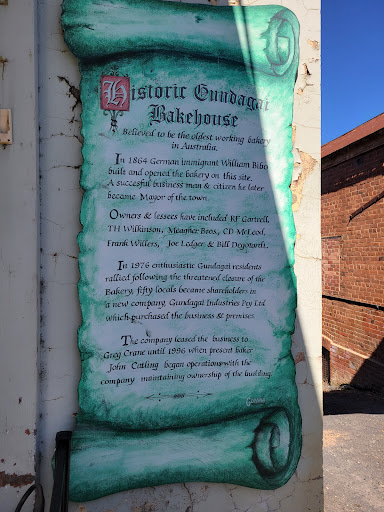 Historic Gundagai
Bakehouse
Believed to be the oldest working bakery
in Australia.
In 1864 German immigrant William Bibo
built and opened the bakery on this site.
A succesful business man & citizen he later
became Mayor of the town.
Owners & lessees have included RF Gartrell,
TH Wilkinson, Meagher Bros, CD McLeod,
Frank Willers, Joe Ledger & Bill Degotardi.
In 1976 enthusiastic Gundagai residents
rallied following the threatened closure of the
Bakery, fifty locals became shareholders in
a new company, Gundagai Industries Pty Ltd
which purchased the business & premises.
The company leased the business to
Greg Crane until 1996 when present baker
John Catling began operations with the
company maintaining ownership of the building.